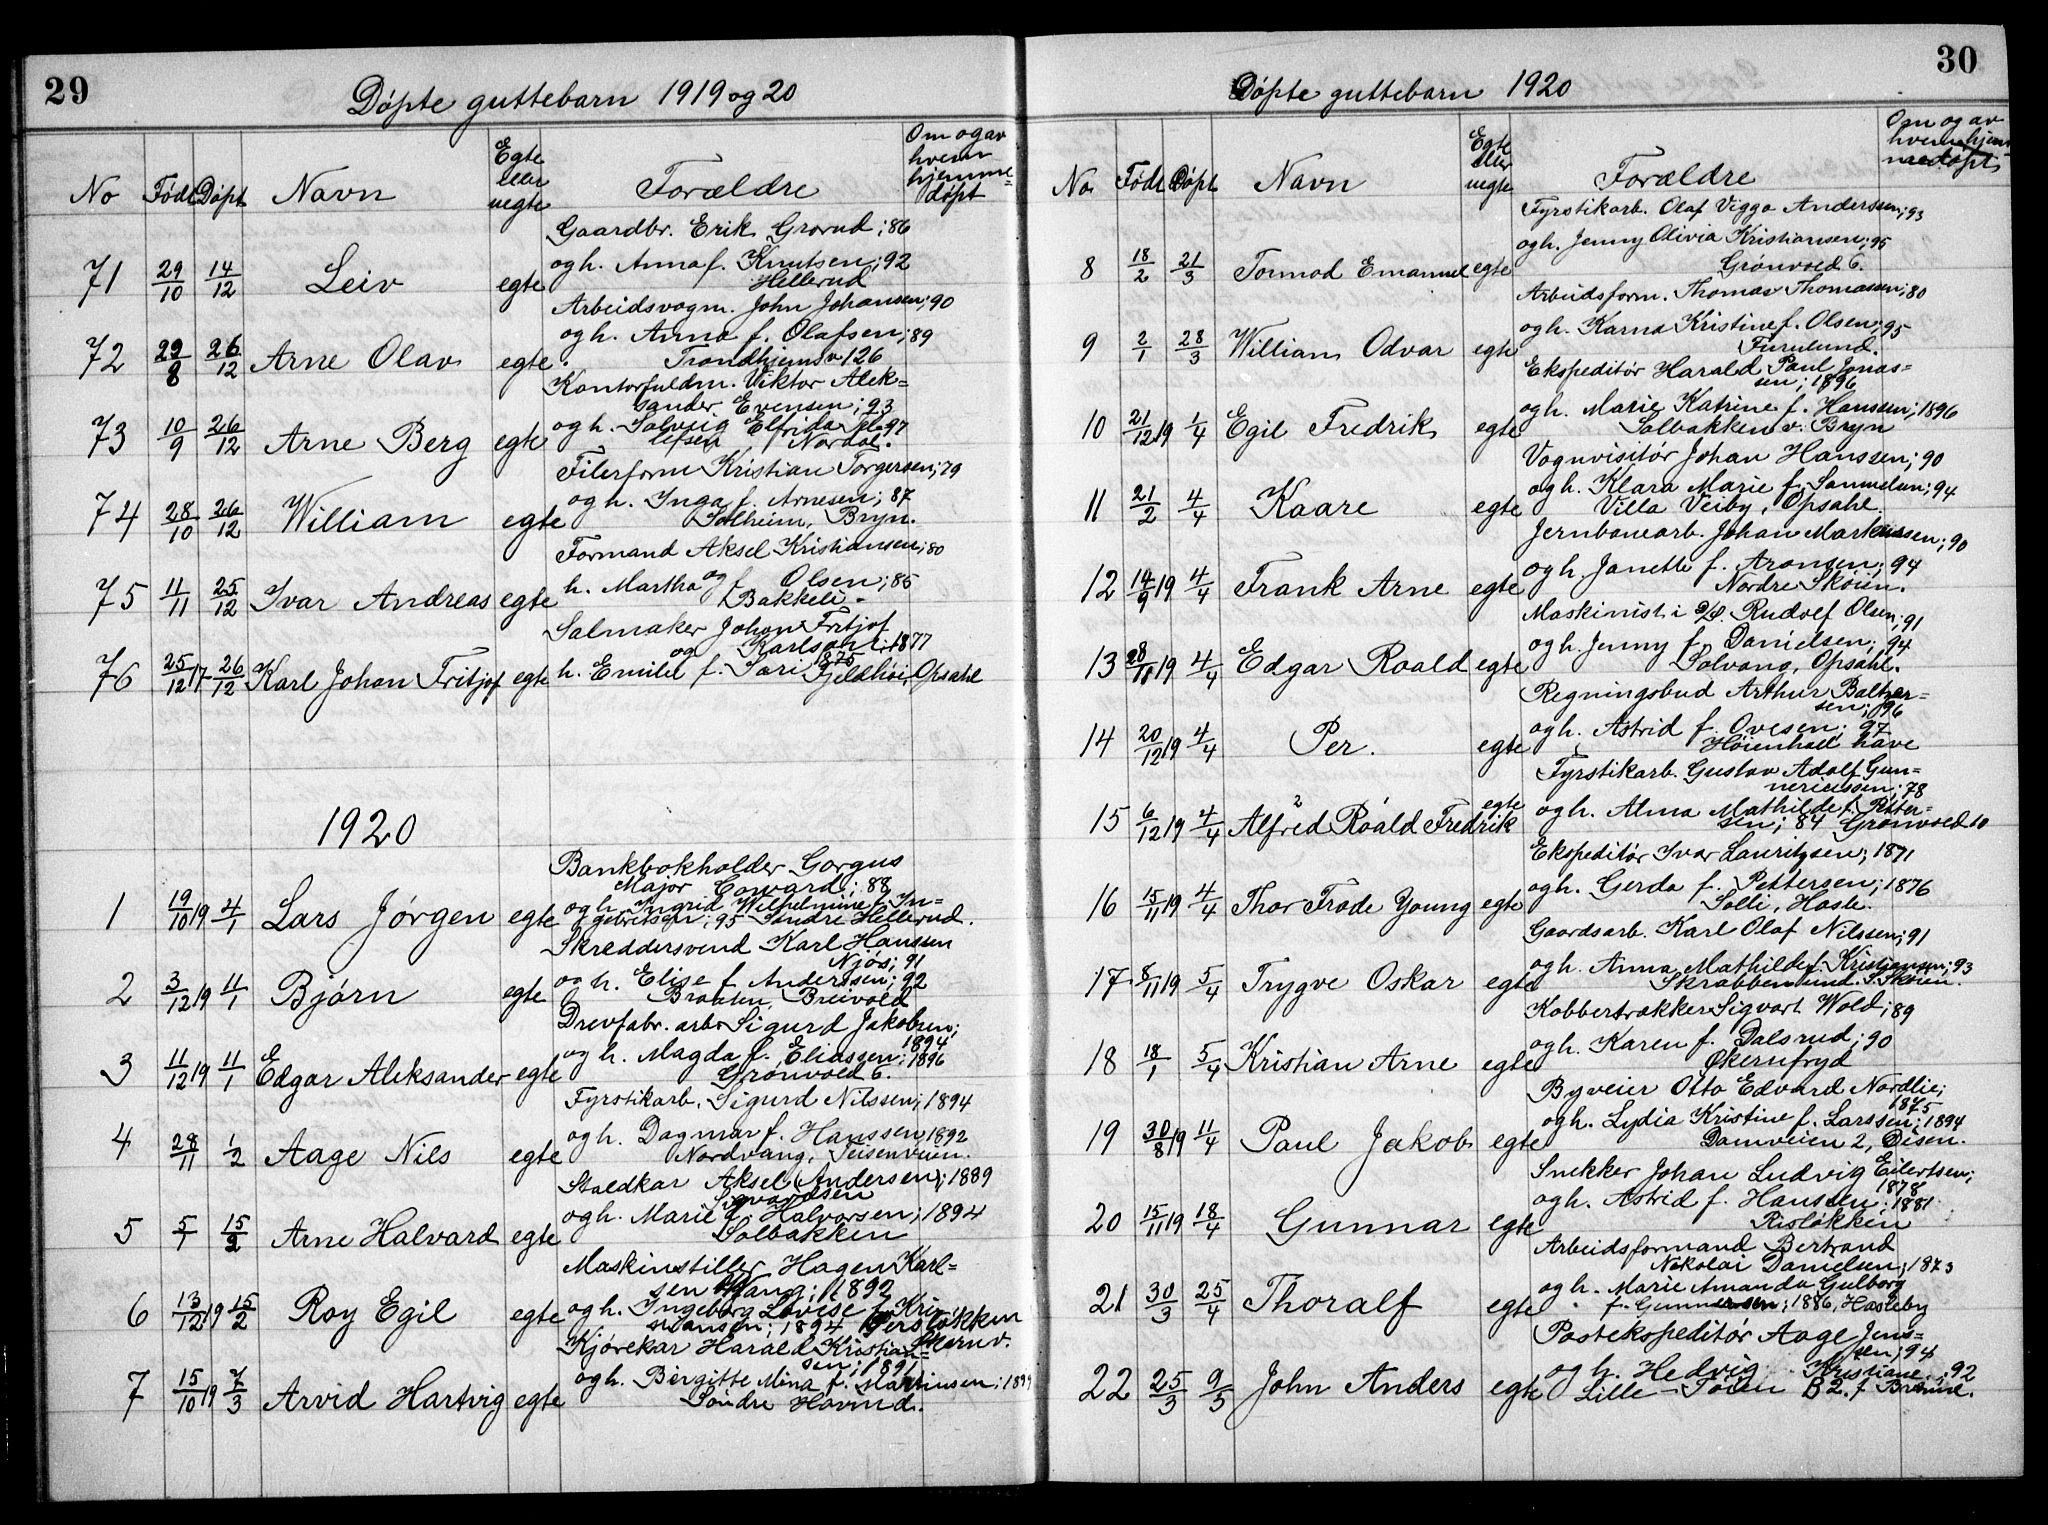 29
Döpte guttebarn 1919 og 20
No Född Döpt Navn Egte eller uegte Forældre Om og av hvem hjemme=döpt
Gaardbr. Erik Grorud; 86
71 29/10 14/12 Leiv egte og h. Anna f. Knutsen; 92
Hellerud
Arbeidsvogm. John Johansen; 90
72 29/8 26/12 Arne Olav egte og h. Anna f. Olafsen; 89
Trondhjemsv 126
Kontorfuldm. Viktor Alek=
sander Evensen; 93
73 10/9 26/12 Arne Berg egte og h. Solveig Elfrida 97
Nordal.
Filerform Kristian Torgersen; 79
74 28/10 26/12 William egte og h. Inga f. Arnesen; 87
Solheim, Bryn.
Formand Aksel Kristiansen; 80
75 11/11 25/12 Ivar Andreas egte og h. Martha f. Olsen; 85
Bakkeli
Salmaker Johan Fritjof
Karlson; 1877
76 25/12 17 26/12 Karl Johan Fritjof egte og h. Emilie f. Sari 1875 Fjeldhöi, Opsahl
1920
Bankbokholder Gorgus
Major Coward; 88
1 19/10 19 4/1 Lars Jörgen egte og h. Ingrid Wilhelmine f. In=
gebrikson; 95 Söndre Hellerud.
Skreddersvend Karl Hanssen
Njös; 91
2 3/12 19 11/1 Björn egte og h. Elise f. Anderssen; 92
Braaten, Breivold
Drevfabr. arb. Sigurd Jakobsen;
1894
3 11/12 19 11/1 Edgar Aleksander egte og h. Magda f. Eliassen; 1896
Grönvold 6.
Fyrstikarb. Sigurd Nilssen; 1894
4 28/11 1/2 Aage Nils egte og h. Dagmar f. Hanssen 1892
Nordvang, Teisenveien.
Staldkar Aksel (Andersen); 1889
Sigvardsen
5 5/1 15/2 Arne Halvard egte og h. Marie f. Halvorsen; 1894
Solbakken
Maskinstiller Hagen Karl=
sen Wang; 1892
6 13/12 19 15/2 Roy Egil egte og h. Ingeborg Lovise f. Kris
tiansen; 1894
Kjörekar Harald Kristian=
sen; 1891
7 15/10 19 7/3 Arvid Hartvig egte og h. Birgitte Mina f. Martinsen; 1899
Söndre Hovind.
30
Döpte guttebarn 1920
No Född Döpt Navn Egte eller uegte Forældre Om og av hvem hjemmedöpt
Fyrstikarb. Olaf Viggo Anderssen; 93
8 18/2 21/3 Tormod Emanuel egte og h. Jenny Olivia Kristiansen; 95
Grönvold 6.
Arbeidsform. Thomas Thomassen; 80
9 2/1 28/3 William Odvar egte og h. Karna Kristine f. Olsen; 95
Furulund.
Ekspeditör Harald Paul Jonas=
sen; 1896
10 21/12 19 1/4 Egil Fredrik egte og h. Marie Katrine f. Hanssen; 1896
Solbakken v. Bryn
Vognvisitör Johan Hanssen; 90
11 21/2 4/4 Kaare egte og h. Klara Marie f. Samuelsen; 94
Villa Veiby, Opsahl.
Jernbanearb. Johan Markussen; 90
12 14/9 19 4/4 Frank Arne egte og h. Janette f. Aronsen; 94
Nordre Sköien.
Maskinist i Rudolf Olsen; 91
13 28/11 19 4/4 Edgar Roald egte og h. Jenny f. Danielsen; 94
Solvang, Opsahl.
Regningsbud Arthur Baltzer=
sen; 96
14 20/12 19 4/4 Per. egte og h. Astrid f. Ovesen; 97
Höienhall have
Fyrstikarb. Gustav Adolf Gun=
neriussen; 78
15 6/12 19 4/4 Alfred Roald Fredrik egte og h. Alma Mathilde f. Petter=
sen; 84 Grönvold 10
Ekspeditör Ivar Lauritzsen; 1871
16 15/11 19 4/4 Thor Frode Young egte og h. Gerda f. Pettersen; 1876
Solli, Hasle.
Gaardsarb. Karl Olaf Nilssen; 91
17 8/11 19 5/4 Trygve Oskar egte og h. Anna Mathilde f. Kristiansen; 93
Skrabbenlund. S. Sköien.
Kobbertrækker Sigvart Wold; 89
18 18/1 5/4 Kristian Arne egte og h. Karen f. Dalsrud; 90
Økernfryd
Byveier Otto Edvard Nordlie;
1875
19 30/8 19 11/4 Paul Jakob egte og h. Lydia Kristine f. Larssen; 1894
Damveien 2, Disen.
Snekker Johan Ludvig Eilertsen;
1878
20 15/11 19 18/4 Gunnar egte og h. Astrid f. Hanssen; 1881
Rislökken
Arbeidsformand Bertrand
Nikolai Danielsen; 1873
21 30/3 25/4 Thoralf egte og h. Marie Amanda Gulborg
f. Gunnersen; 1886, Hasleby
Postekspeditör Aage Jens=
sen; 94
22 25/3 9/5 John Anders egte og h. Hedvig Kristiane; 92
Lille Töien B 2. f.